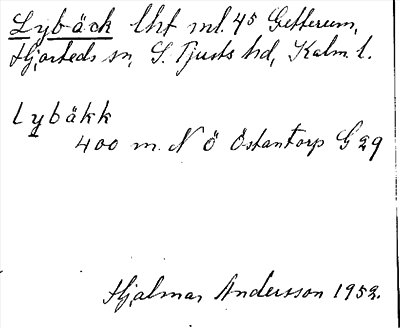 Lybäck lht inl. 45 Getterum,
Hjorteds sn, S. Tjusts hd, Kalm. l.
Lybäkk
400 m. N Ö Östantorp G 29
Hjalmar Andersson 1952.